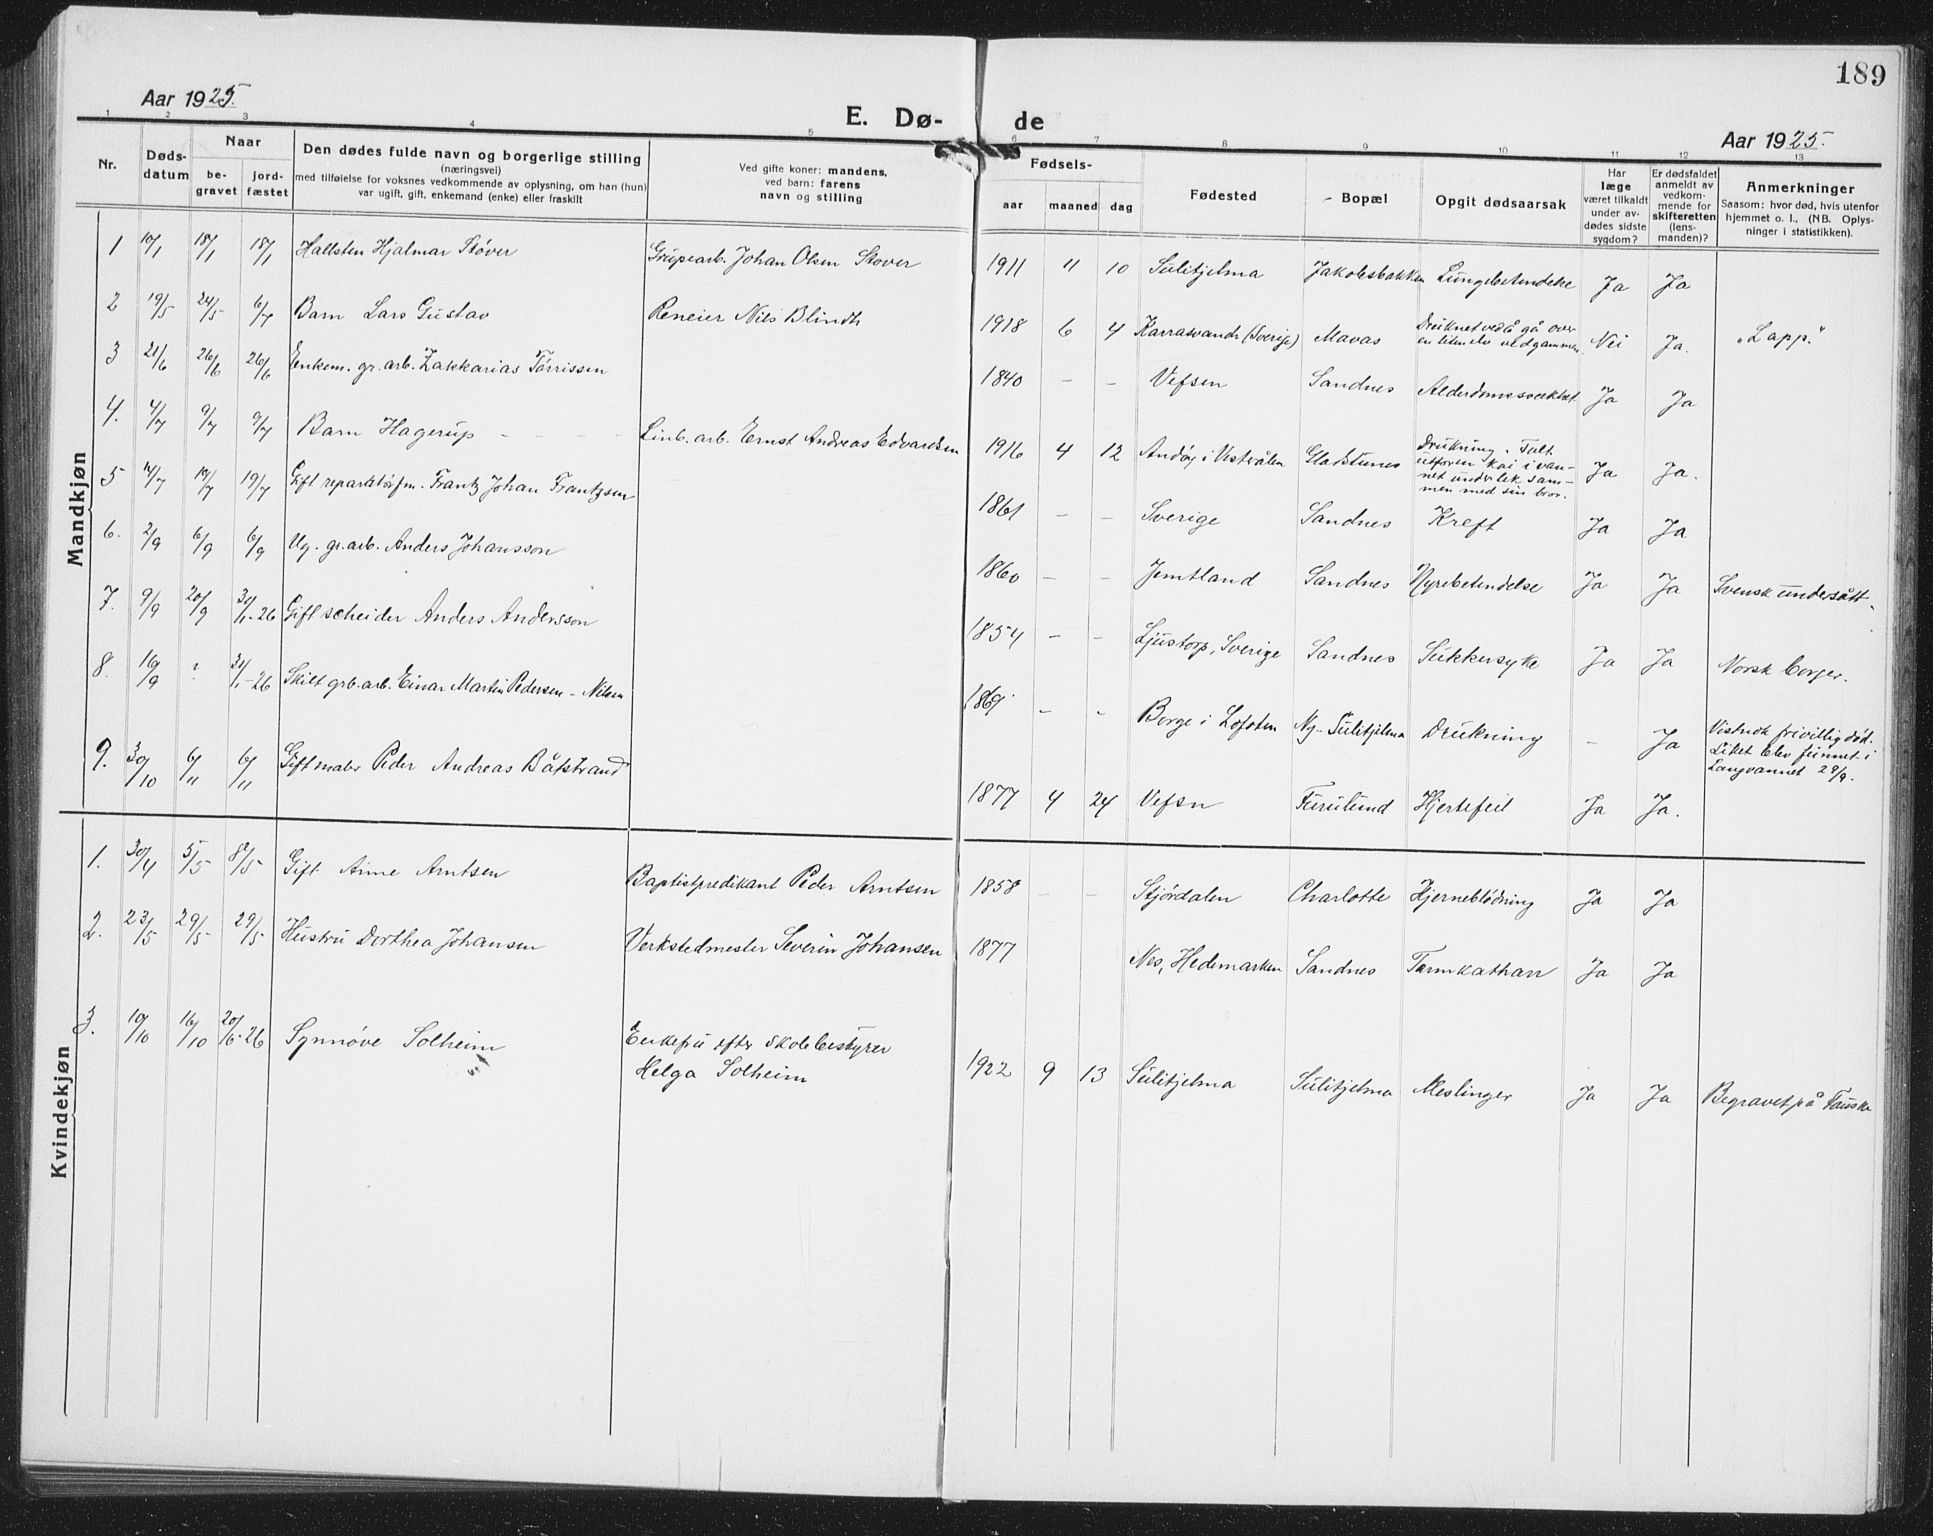 189
Aar 1925.
E. Dø- de
Aar 1925.
1 2 3 4 5 6 7 8 9 10 11 12 13
Nr.
Døds-
datum
Naar
be-
gravet
jord-
fæstet
Den dødes fulde navn og borgerlige stilling
(næringsvei)
med tilføielse for voksnes vedkommende av oplysning, om han (hun)
var ugift, gift, enkemand (enke) eller fraskilt
Ved gifte koner: mandens,
ved barn: farens
navn og stilling
Fødsels-
aar maaned dag
Fødested
Bopæl
Opgit dødsaarsak
Har
læge
været tilkaldt
under av-
dødes sidste
sygdom?
Er dødsfaldet
anmeldt av
vedkom-
mende for
skifteretten
(lens-
manden)?
Anmerkninger
Saasom: hvor død, hvis utenfor
hjemmet o. l., (NB. Oplys-
ninger i statistikken).
Mandkjøn
1 10/1 18/1 18/1 Hallsten Hjalmar Støver Grubearb. Johan Olsen Støver 1911 11 10 Sulitjelma Jakobsbakken Lungebetendelse Ja Ja
2 19/5 24/5 6/7 Barn Lars Gustav Reneier Nils Blindh 1918 6 4 Karrasvandr (Sverige) Mavas Druknet ved å gå over
en liten elv ved gammen. Nei Ja. "Lapp."
3 21/6 26/6 26/6 Enkem. gr. arb. Zakkarias Tørrissen 1840 – – Vefsen Sandnes Alderdomssvakhet Ja Ja
4. 4/7 9/7 9/7 Barn Hagerup – – – – Linb. arb. Ernst Andreas Edvardsen 1916 4 12 Andøy i Vestrålen Gladstunes Drukning. Falt
utfor en kai i van-
net under lek sam-
men med sin bror. Ja Ja.
5 14/7 19/7 19/7 Gift reparatørfm. Frantz Johan Frantzsen 1861 – – Sverige Sandnes Kreft Ja Ja
6. 2/9 6/9 6/9 Ug. gr. arb. Anders Johansson 1860 – – Jemtland Sandnes Nyrebetendelse Ja Ja Svensk undersått.
7. 9/9 20/9 30/1-26 Gift scheider Anders Andersson 1854 – – Ljustorp, Sverige Sandnes Sukkersyke Ja Ja Norsk borger.
8. 16/9 ? 31/1-26 Skilt grb. arb. Einar Martin Pedersen – Nilsen 1869 – – Borge i Lofoten Ny-Sulitjelma Drukning – Ja Vistnok frivillig død.
Liket blev funnet i
Langvannet 29/9.
9. 30/10 6/11 6/11 Gift maler Peder Andreas Båtstrand 1877 4 24 Vefsn Furulund Hjertefeil Ja Ja.
Kvindekjøn
1. 30/4 5/5 8/5 Gift Anne Arntsen Baptistpredikant Peder Arntsen 1858 – – Stjørdalen Charlotte Hjerneblødning Ja Ja
2. 23/5 29/5 29/5 Hustru Dorthea Johansen Verkstedmester Severin Johansen 1877 Nes, Hedemarken Sandnes Tarmkatharr Ja Ja
3. 10/10 16/10 20/6-26 Synnøve Solheim Enkefru efter skolebestyrer
Helga Solheim 1922 9 13 Sulitjelma Sulitjelma Meslinger Ja Ja Begravet på Fauske